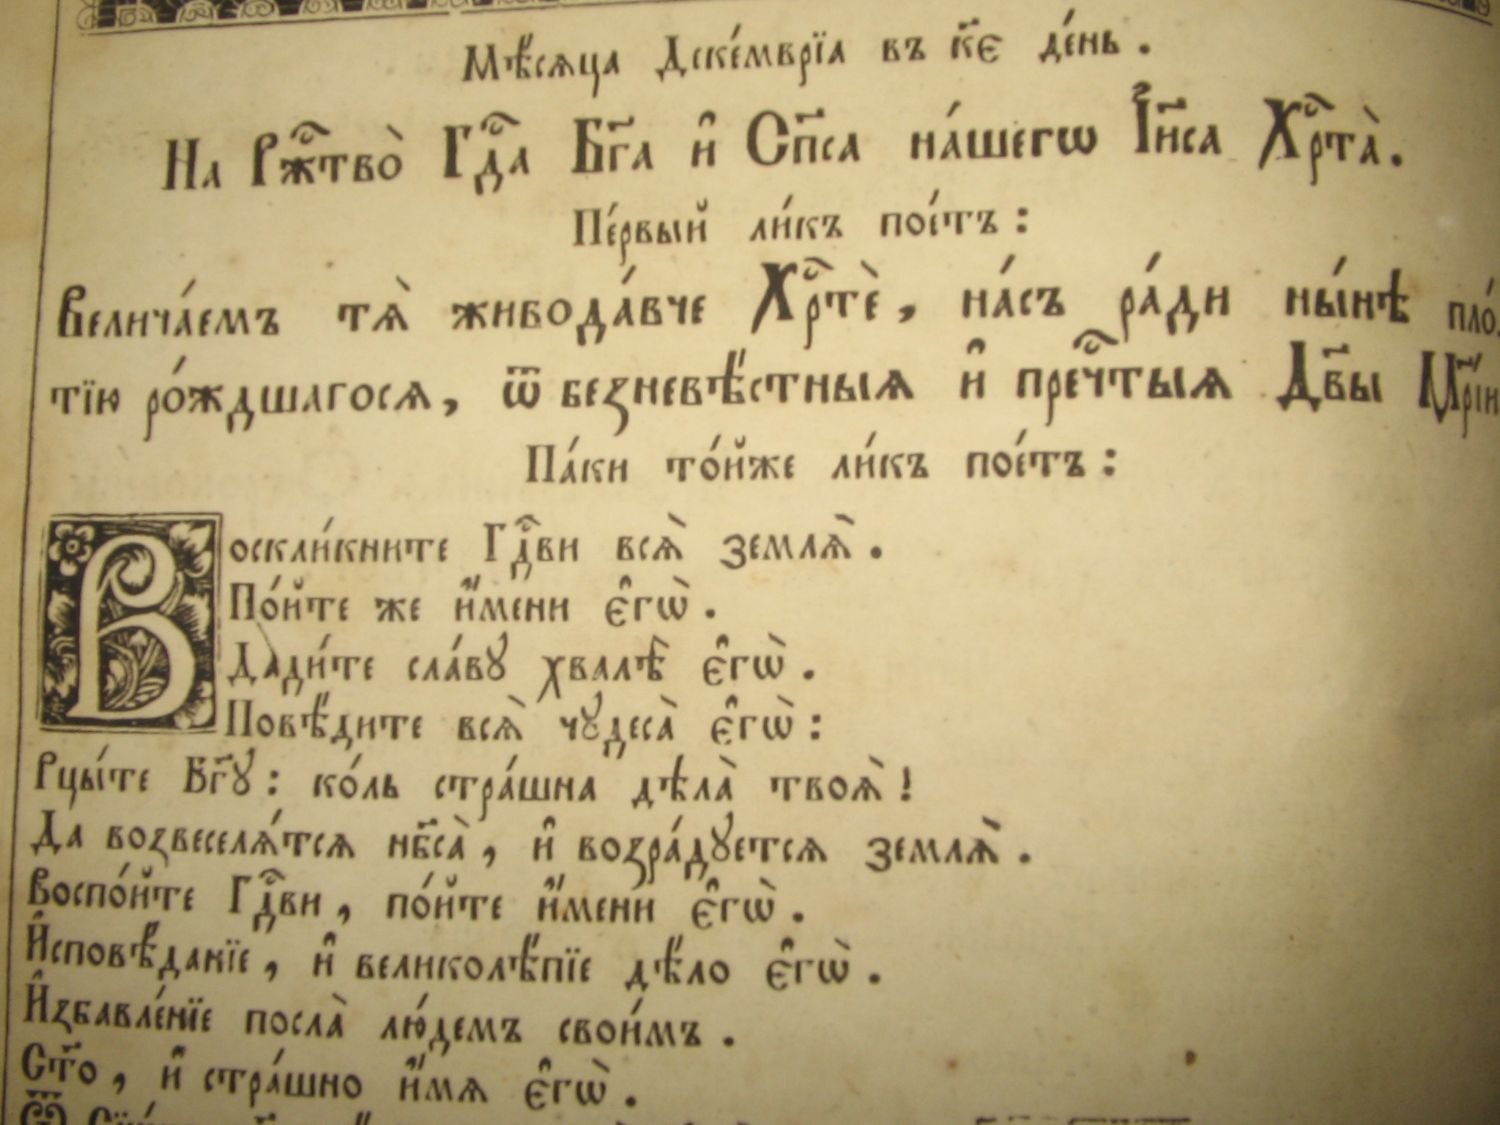 Мѣ́сѧца Деке́мврїа въ к҃є де́нь.
На Рж҇тво̀ Гдⷭ҇а Бг҃а и҆ Сп҃са на́шегѡ І҆и҃са Хрⷭ҇та̀.
Пе́рвый ли́къ пое́тъ:
Велича́емъ тѧ̀ живода́вче Хрⷭ҇тѐ, на́съ ра́ди ны́нѣ пло́
тїю ро́ждшагосѧ, ѿ безневѣ́стныѧ и҆ пречⷭ҇тыѧ Дв҃ы Мр҃і́и
Па́ки то́йже ли́къ пое́тъ:
Воскли́кните Гдⷭ҇ви всѧ̀ землѧ̀.
По́йте же и҆́мени є҆гѡ̀.
Дади́те сла́ву хвалѣ̀ є҆гѡ̀.
Повѣ́дите всѧ̀ чꙋдеса̀ є҆гѡ̀:
Рцы́те Бг҃ꙋ: ко́ль стра́шна дѣла̀ твоѧ̀!
Да возвеселѧ́тсѧ нб҃са̀, и҆ возра́дꙋетсѧ землѧ̀.
Воспо́йте Гдⷭ҇ви, по́йте и҆́мени є҆гѡ̀.
И҆сповѣ́данїе, и҆ великолѣ́пїе дѣ́ло є҆гѡ̀.
И҆збавле́нїе посла̀ лю́демъ свои́мъ.
Ст҃о, и҆ стра́шно и҆́мѧ є҆гѡ̀.